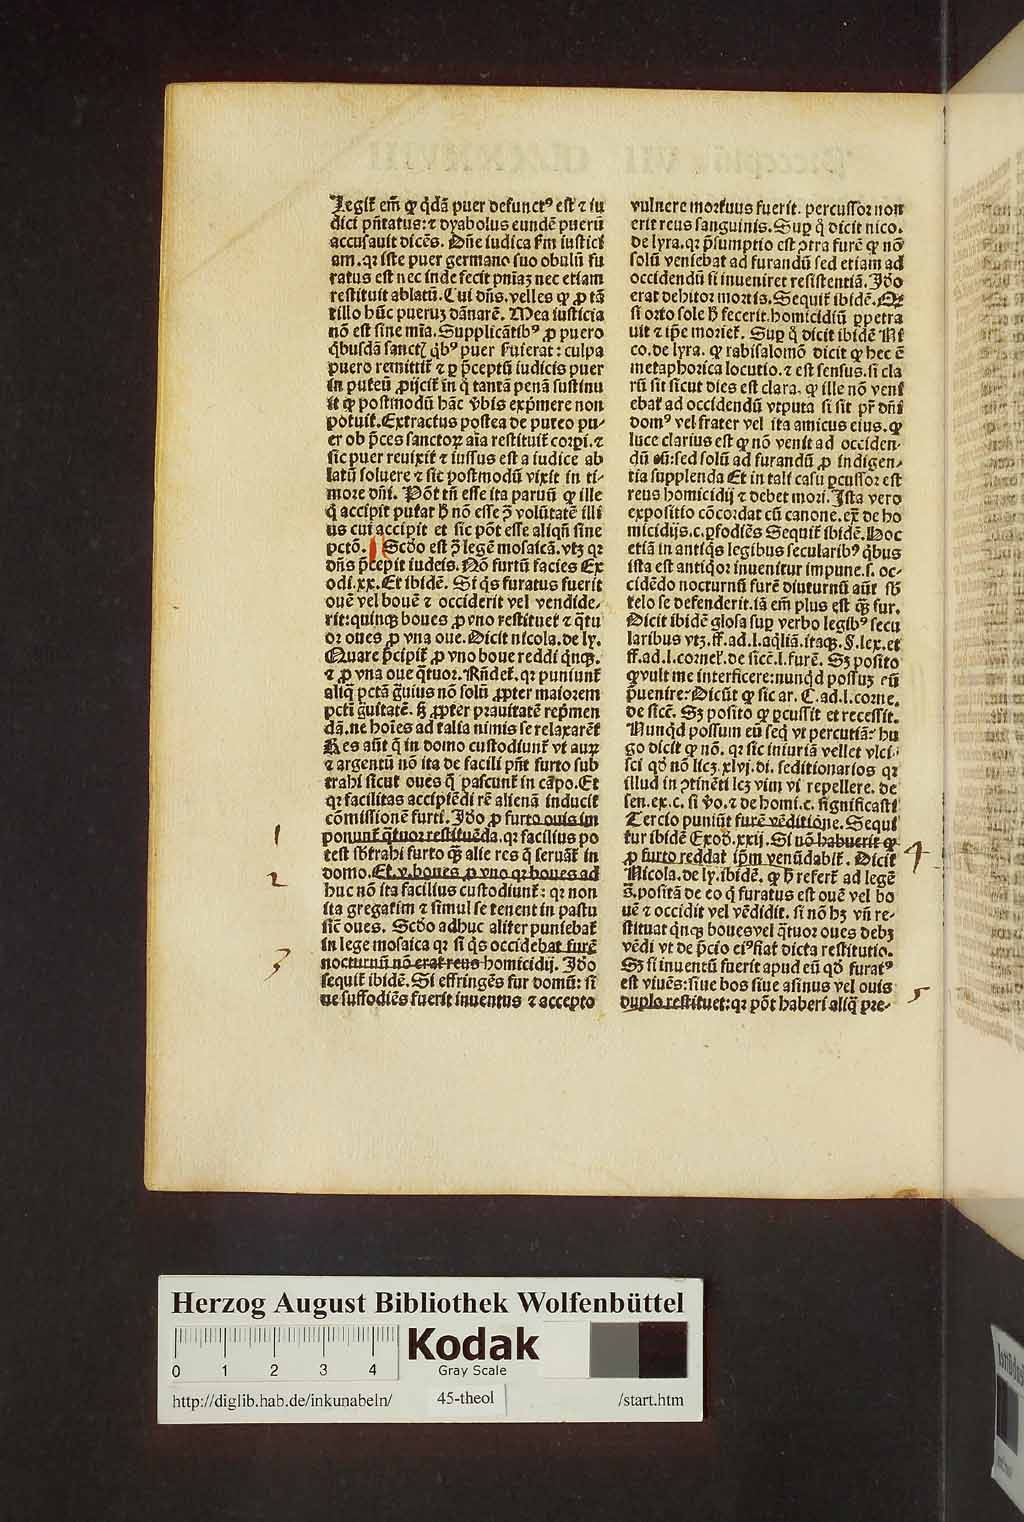 Legit᷑ em̄ ꝙ q̇dā puer defunctꝰ est ⁊ iu
dici pn̄tatus: ⁊ dyabolus eundē puerū
accusauit dicēs. Dn̄e iudica ẜm iustici
am. qꝛ iste puer germano suo obulū fu
ratus est nec inde fecit pn̄iaꝫ nec etiam
restituit ablatū. Cui dn̄s. velles ꝙ ꝓ tā
tillo hūc pueruꝫ dānarē. Mea iusticia
nō est sine mīa. Supplicātibꝰ ꝓ puero
q̇busdā sanctꝭ q̇bꝰ puer ẜuierat: culpa
puero remittit᷑ ⁊ ꝑ p̄ceptū iudicis puer
in puteū ꝓijcit᷑ in q̊ tantā penā sustinu
it ꝙ postmodū hāc v̄bis exp̄mere non
potuit. Extractus postea de puteo pu-
er ob p̄ces sanctoꝝ aīa restituit᷑ corꝑi. ⁊
sic puer reuixit ⁊ iussus est a iudice ab
latū soluere ⁊ sic postmodū vixit in ti-
more dn̄i. Pōt tn̄ esse ita paruū ꝙ ille
q̇ accipit putat ꝙ nō esse ꝯ̄ volūtatē illi
us cui accipit et sic pōt esse aliqn̄ sine
pctō. Scd̄o est ꝯ̄ legē mosaicā. vtꝫ qꝛ
dn̄s p̄cepit iudeis. Nō furtū facies Ex
odi. xx. Et ibidē. Si q̇s furatus fuerit
ouē vel bouē ⁊ occiderit vel vendide-
rit: quinqꝫ boues ꝓ vno restituet ⁊ q̄tu
or oues ꝓ vna oue. Dicit nicola. de ly.
Quare p̄cipit᷑ ꝓ vno boue reddi q̇nqꝫ.
⁊ ꝓ vna oue q̄tuor. Rn̄det᷑. qꝛ puniunt᷑
aliq̄ pctā g̊uius nō solū ꝓpter maiorem
pcti g̊uitatē. ẜꝫ ꝓpter prauitatē rep̄men
dā. ne hoīes ad talia nimis se relaxarēt
Res aūt q̄ in domo custodiunt᷑ vt auꝝ
⁊ argentū nō ita de facili pn̄t furto sub
trahi sicut oues q̄ pascunt᷑ in cāpo. Et
qꝛ facilitas accipiēdi rē alienā inducit
cōmissionē furti. Iō ꝓ furto ouis im
ponunt᷑ q̄tuor restituēda. qꝛ facilius po
test sb̄trahi furto q̄ꝫ alie res q̄ seruāt᷑ in
domo. Et. v. boues ꝓ vno qꝛ boues ad
huc nō ita facilius custodiunt᷑: qꝛ non
ita gregatim ⁊ simul se tenent in pastu
sic̄ oues. Scd̄o adhuc aliter puniebat᷑
in lege mosaica qꝛ si q̇s occidebat furē
nocturnū nō erat reus homicidij. Iō
sequit᷑ ibidē. Si effringēs fur domū: si
ue suffodiēs fuerit inuentus ⁊ accepto
vulnere mortuus fuerit. percussor non
erit reus sanguinis. Suꝑ q̊ dicit nico.
de lyra. qꝛ p̄sumptio est ꝯtra furē ꝙ nō
solū veniebat ad furandū sed etiam ad
occidendū si inueniret resistentiā. Iō
erat debitor mortis. Sequit᷑ ibidē. Qꝙ
si orto sole ħ fecerit. homicidiū ꝑpetra
uit ⁊ ip̄e moriet᷑. Suꝑ q̊ dicit ibidē Ni
co. de lyra. ꝙ rabisalomō dicit ꝙ hec ē
metaphorica locutio. ⁊ est sensus. si cla
rū sit sicut dies est clara. ꝙ ille nō veni
ebat ad occidendū vtputa si sit pr̄ dn̄i
domꝰ vel frater vel ita amicus eius. ꝙ
luce clarius est ꝙ nō venit ad occiden-
dū eū: sed solū ad furandū ꝓ indigen-
tia supplenda Et in tali casu ꝑcussor est
reus homicidij ⁊ debet mori. Ista vero
expositio cōcordat cū canone. ex̄ de ho
micidijs. c. ꝑfodiēs Sequit᷑ ibidē. Hoc
etiā in antiq̇s legibus secularibꝰ q̇bus
ista est antiq̇or inuenitur impune. s. oc-
cidēdo nocturnū furē diuturnū aūt si
telo se defenderit. iā em̄ plus est q̄ꝫ fur.
Dicit ibidē glosa suꝑ verbo legibꝰ secu
laribus vtꝫ. ff. ad. l. aq̇liā. itaqꝫ. §. lex. et
ff. ad. l. cornel᷑. de sicē. l. furē. Sꝫ posito
ꝙ vult me interficere: nunqd̄ possuꝫ eū
p̄uenire: Dicūt ꝙ sic ar. C. ad. l. corne.
de sicē. Sꝫ posito ꝙ ꝑcussit et recessit.
Nunqd̄ possum eū seq̇ vt percutiā: hu
go dicit ꝙ nō. qꝛ sic iniuriā vellet vlci-
sci qd̄ nō licꝫ. xlvj. di. seditionarios qꝛ
illud in ꝯtinēti lcꝫ vim vi repellere. de
sen. ex. c. si v̄o. ⁊ de homi. c. significasti
Tercio puniūt furē vēditiōe. Sequi
tur ibidē Exod̄. xxij. Si nō habuerit ꝙ
ꝓ furto reddat ip̄m venūdabit᷑. Dicit
Nicola. de ly. ibidē. ꝙ ħ refert᷑ ad legē
s̄. positā de eo q̇ furatus est ouē vel bo
uē ⁊ occidit vel vēdidit. si nō hꝫ vn̄ re-
stituat q̇nqꝫ boues vel q̄tuor oues debꝫ
vēdi vt de p̄cio eiꝰ fiat dicta restitutio.
Sꝫ si inuentū fuerit apud eū qd̄ furatꝰ
est viuēs: siue bos siue asinus vel ouis
duplo restituet: qꝛ pōt haberi aliq̇ pre-
1
2
3
4
5
Herzog August Bibliothek Wolfenbüttel
Kodak
Gray Scale
0 1 2 3 4
http://diglib.hab.de/inkunabeln/ 45-theol /start.htm